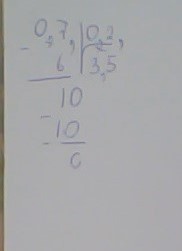 0,7, 0,2,
- 6 3,5
10
- 10
0